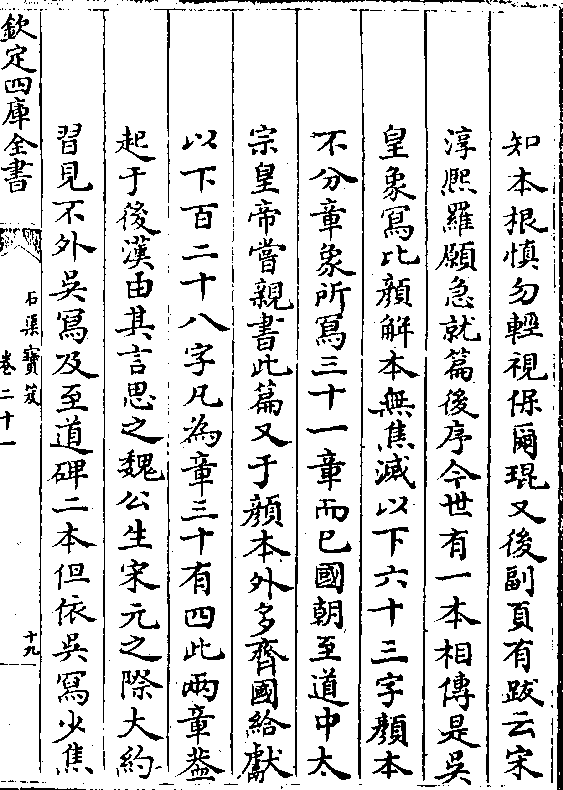 知本根慎勿輕視保爾琨又後副頁有跋云宋
淳熙羅願急就篇後序今世有一本相傳是吳
皇象寫比顔解本無焦滅以下六十三字顔本
不分章象所寫三十一章而已國朝至道中太
宗皇帝嘗親書此篇又于顔本外多齊國給獻
以下百二十八字凡為章三十有四此兩章葢
起于後漢由其言思之魏公生宋元之際大約
習見不外吳寫及至道碑二本但依吳寫少焦
欽定四庫全書
石渠寶笈
卷二十一
十九